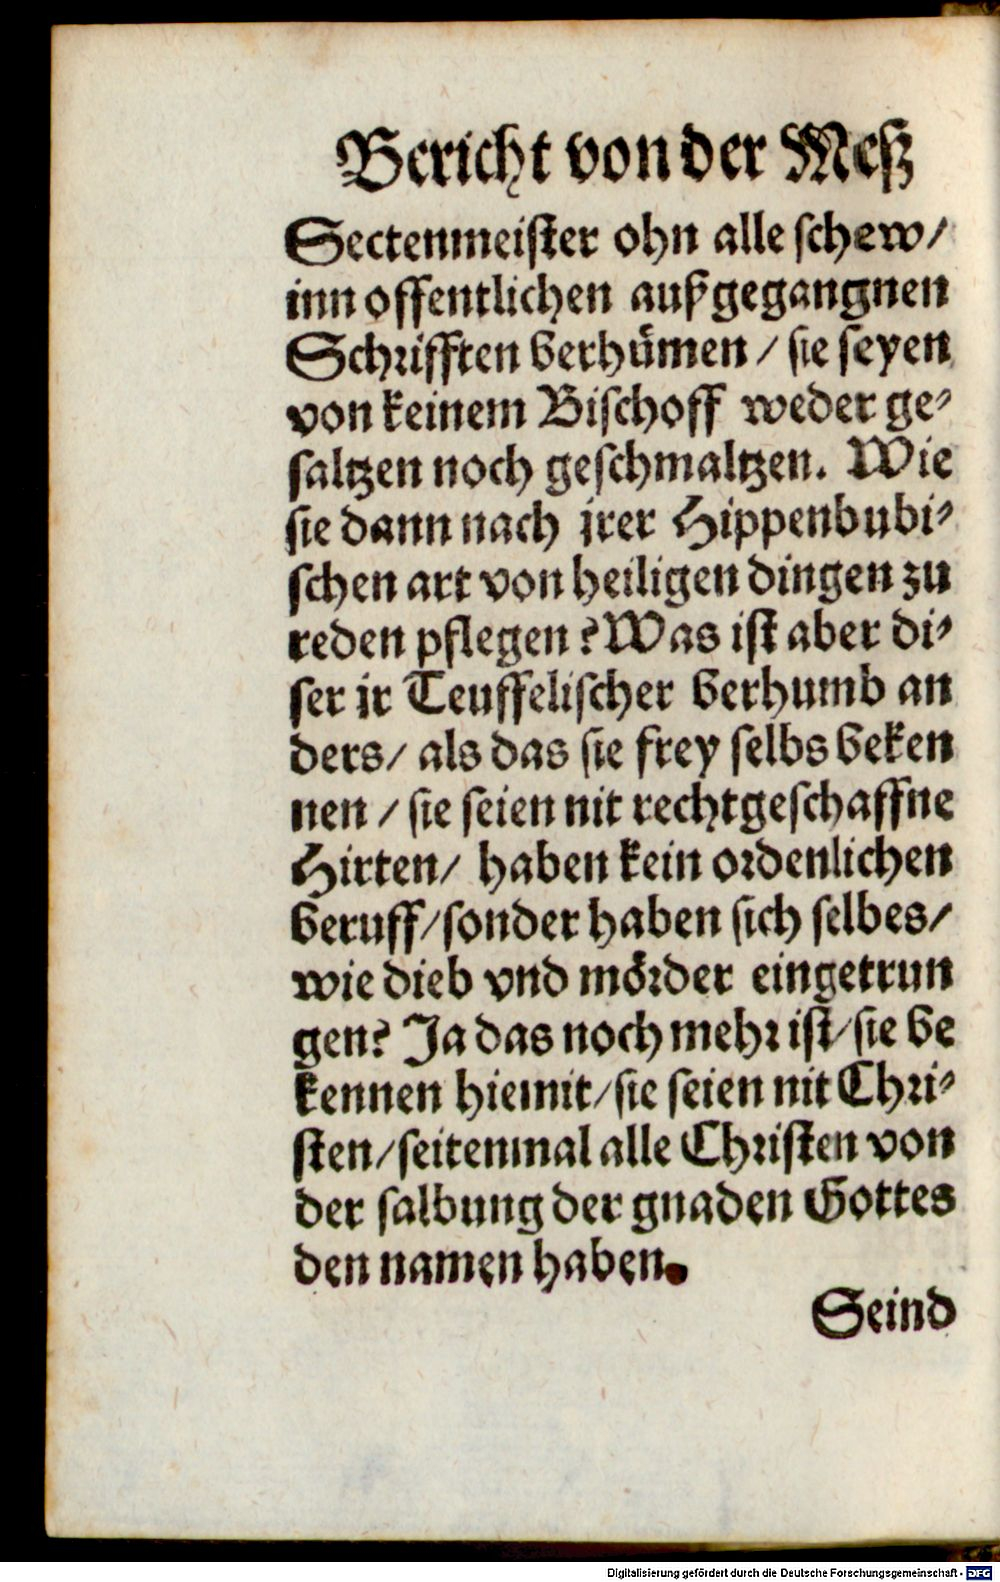 Bericht von der Meß
Sectenmeister ohn alle schew/
inn offentlichen außgegangnen
Schrifften berhuͤmen / sie seyen
von keinem Bischoff weder ge⸗
saltzen noch geschmaltzen. Wie
sie dann nach jrer Hippenbubi⸗
schen art von heiligen dingen zu
reden pflegen? Was ist aber di⸗
ser jr Teuffelischer berhumb an
ders/ als das sie frey selbs beken
nen / sie seien nit rechtgeschaffne
Hirten/ haben kein ordenlichen
beruff/sonder haben sich selbes/
wie dieb vnd moͤrder eingetrun
gen? Ja das noch mehr ist/sie be
kennen hiemit/sie seien nit Chri⸗
sten/seitenmal alle Christen von
der salbung der gnaden Gottes
den namen haben.
Seind
Digitalisierung gefördert durch die Deutsche Forschungsgemeinschaft - DFG